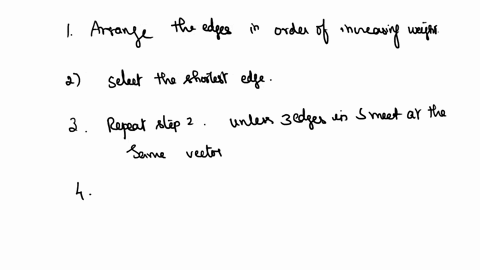 1. Arrange the edges in order of increasing weight.
2) Select the shortest edge.
3. Repeat step 2. unless 3 edges in S meet at the
same vector
4.